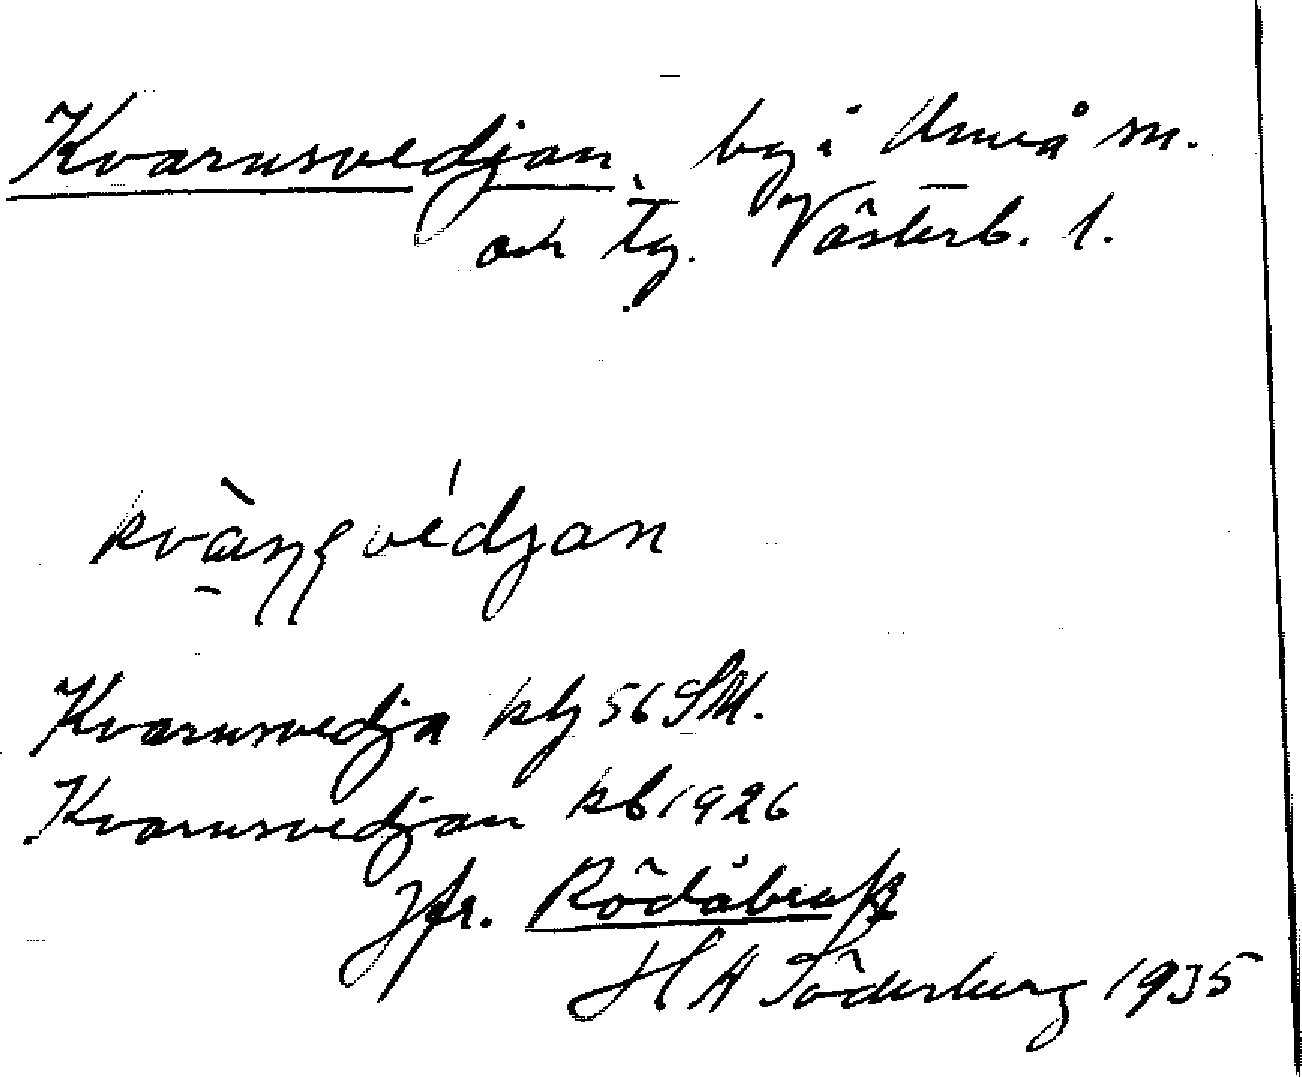 Kvarnsvedjan by i Umeå sn.
och tg. Västerb. l.
Kvarnsvedja kbg 56 SM.
Kvarnsvedjan kb 1926
Jfr. Rödåbrask
H A Söderberg 1935